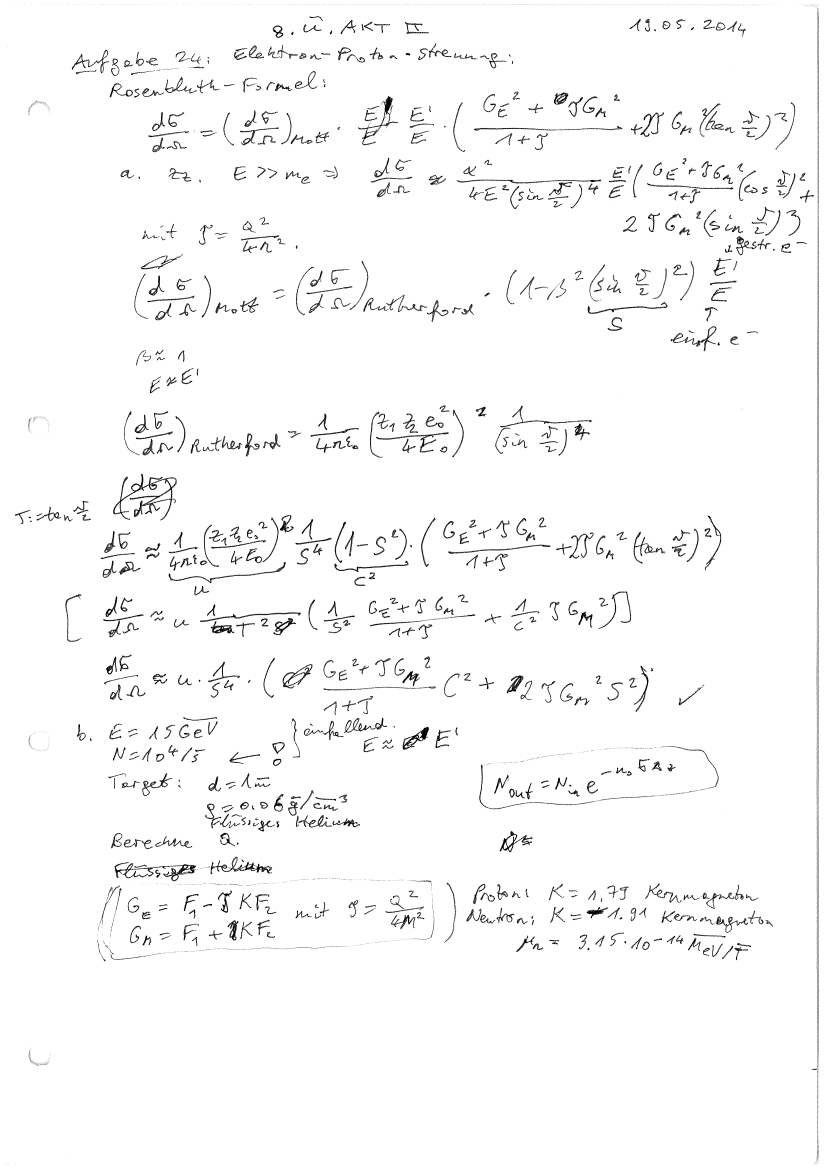 8. Ü. AKT II 19.05.2014
Aufgabe 24: Elektron-Proton-Streuung:
Rosenbluth-Formel:
dσ/dΩ = (dσ/dΩ)Mott · E'/E · ( (G_E² + τG_M²)/(1+τ) + 2τ G_M² (tan ϑ/2)² )
a. zz. E >> m_e ⇒ dσ/dΩ ≈ α²/(4E²(sin ϑ/2)⁴) E'/E ( (G_E² + τG_M²)/(1+τ) (cos ϑ/2)² +
2τG_M² (sin ϑ/2)² )
mit τ = Q²/4M².
gestr. e⁻
(dσ/dΩ)Mott = (dσ/dΩ)Rutherford · (1-β² (sin ϑ/2)²) E'/E
S
einf. e⁻
β ≈ 1
E ≈ E'
(dσ/dΩ)Rutherford = 1/4πε₀ (z₁ z₂ e₀²/4E₀)² 1/(sin ϑ/2)⁴
T := tan ϑ/2
dσ/dΩ ≈ 1/4πε₀ (z₁z₂e₀²/4E₀)² 1/S⁴ (1-S²) · ( (G_E² + τG_M²)/(1+τ) + 2τG_M² (tan ϑ/2)² )
u C²
[ dσ/dΩ ≈ u 1/T² ( 1/S² (G_E² + τG_M²)/(1+τ) + 1/C² τG_M² ) ]
dσ/dΩ ≈ u · 1/S⁴ · ( (G_E² + τG_M²)/(1+τ) C² + 2τG_M² S² ) ✓
b. E = 15 GeV } einfallend.
N = 10⁴/s ← ! E ≈ E'
Target: d = 1m
ρ = 0.06 g/cm³
Flüssiges Helium
N_out = N_in e^(-n₀ σ Δz)
Berechne Q.
Flüssiges Helium
( G_E = F₁ - τKF₂
G_M = F₁ + KF₂ mit τ = Q²/4M² )
Proton: K = 1,79 Kernmagneton
Neutron: K = -1.91 Kernmagneton
μ_n = 3.15·10⁻¹⁴ MeV/T